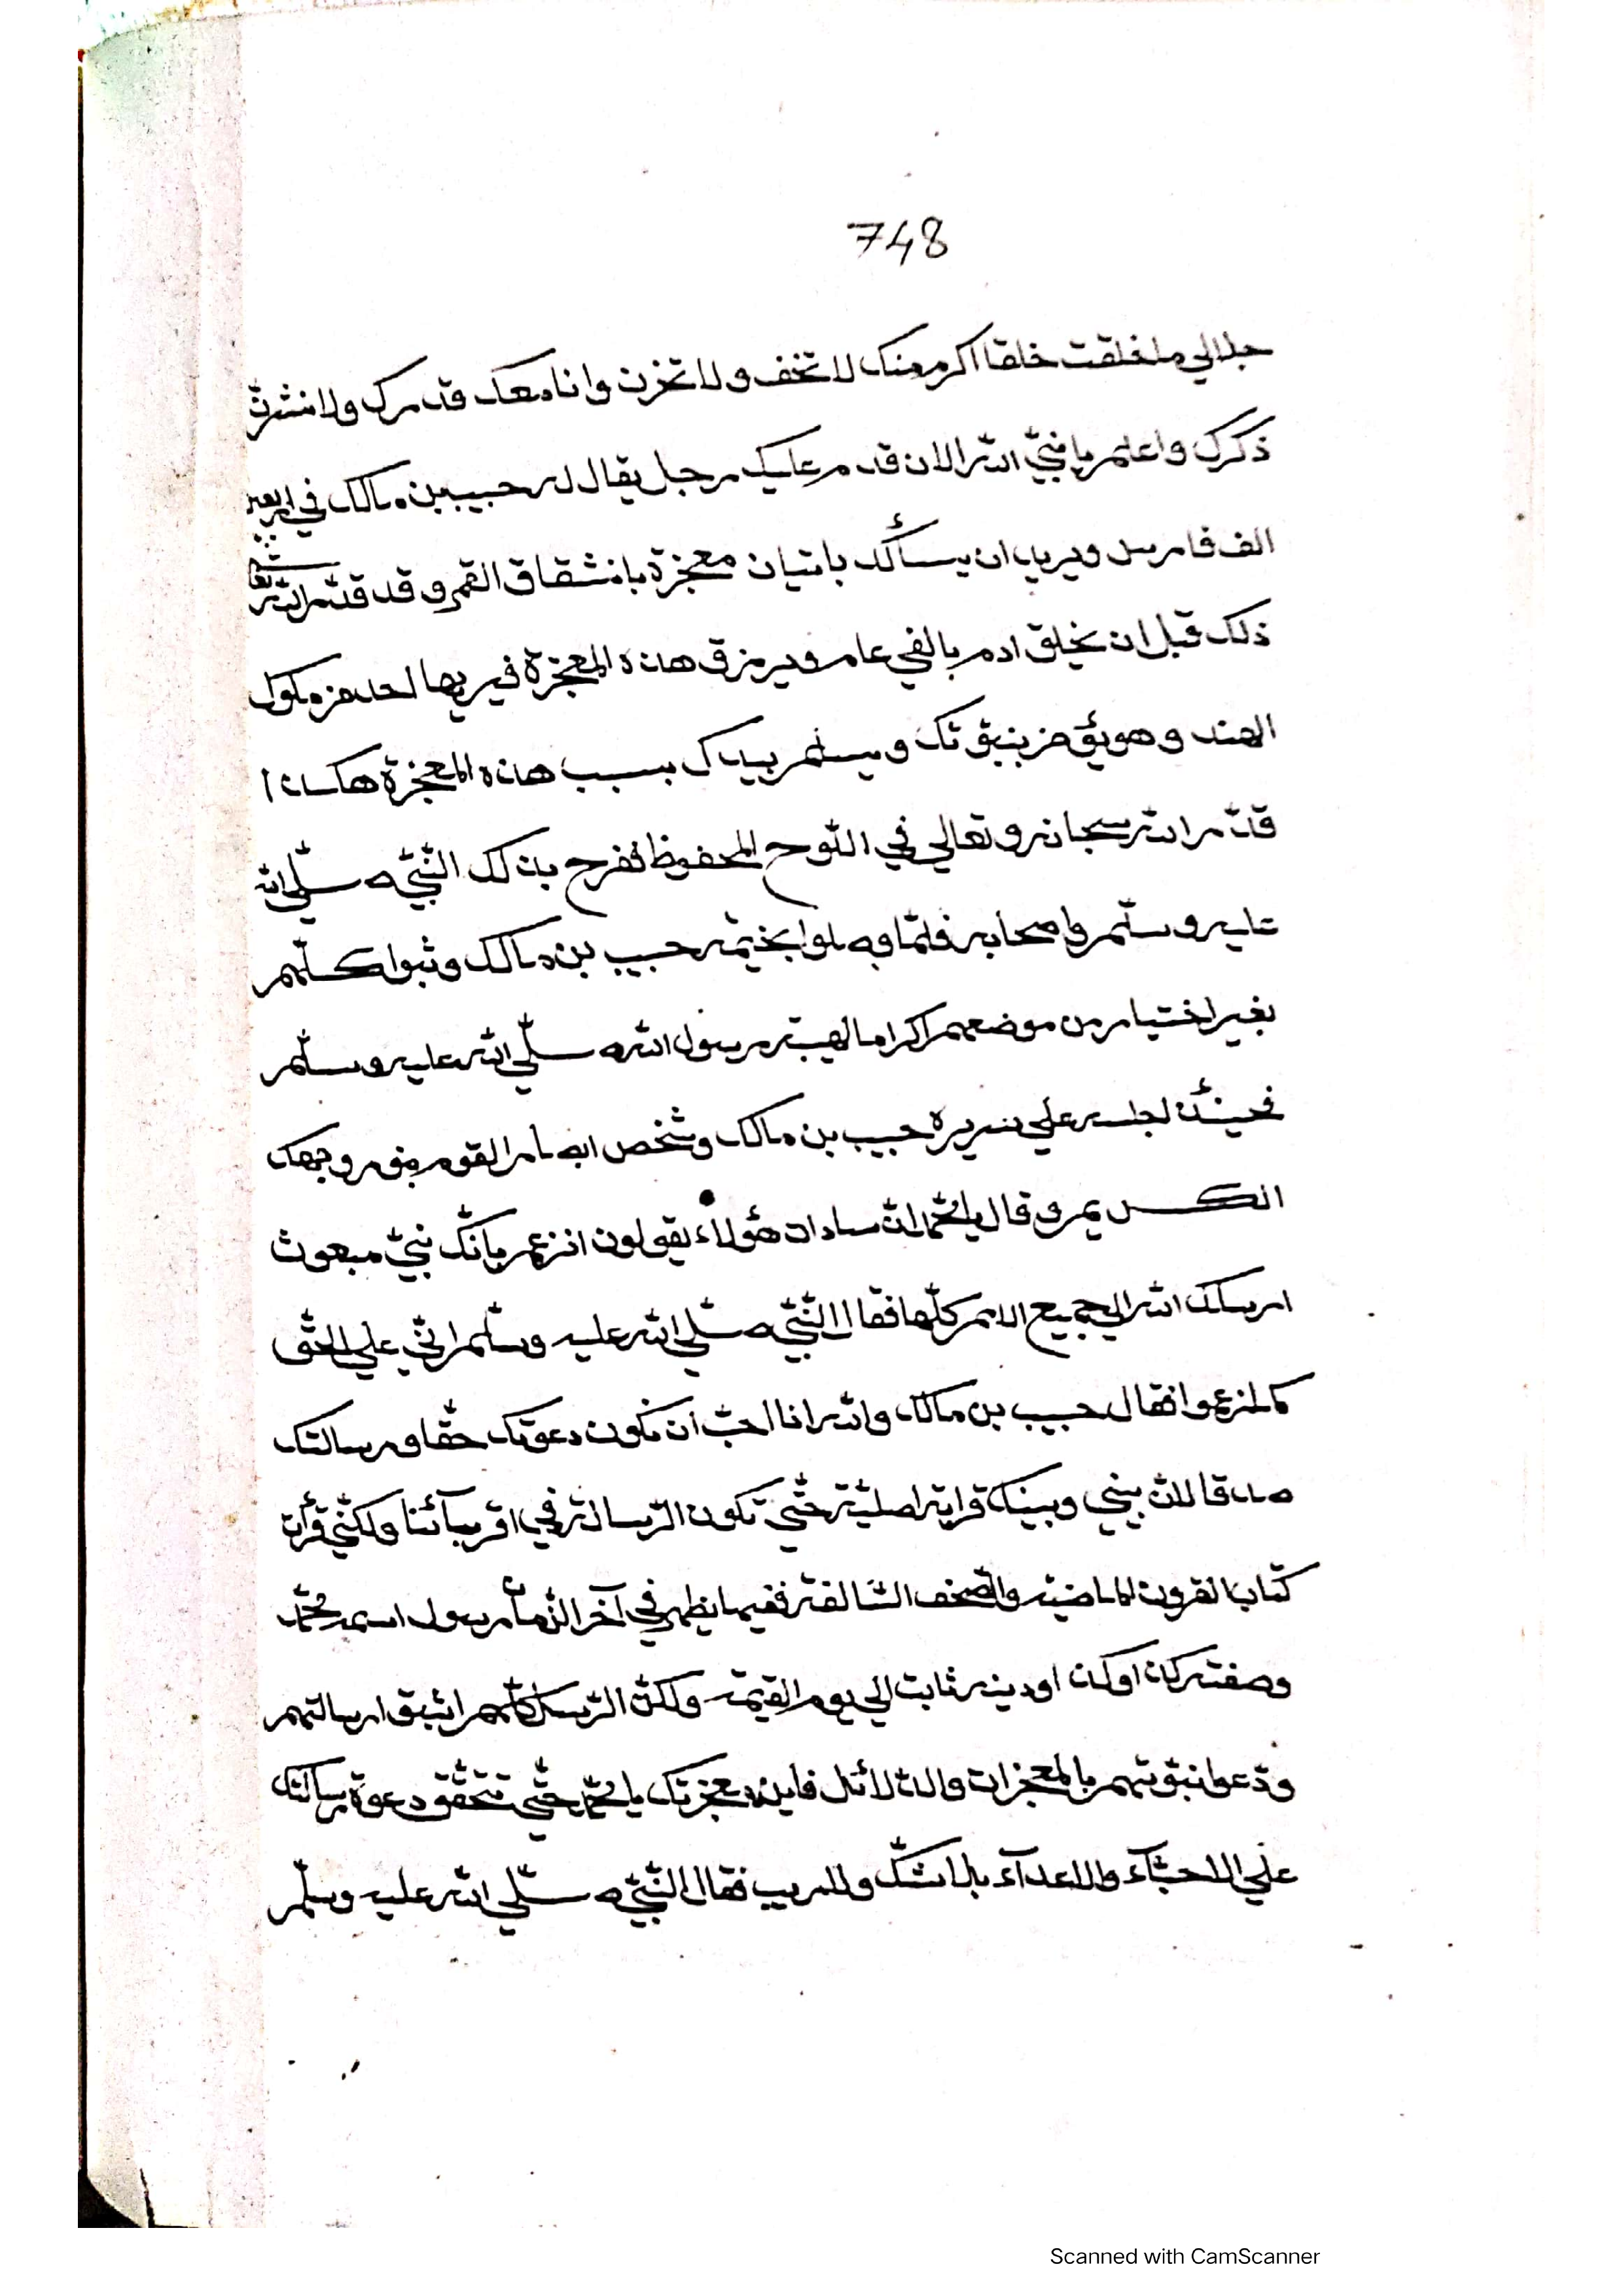 748
جلالي ما خلقت خلقا اكرم منك لا تخف ولا تحزن وانا معك قدرك ولا نشرت
ذكرك واعلم يا نبيّ الله الان قدم عليك رجل يقال له حبيب بن مالك في اربعين
الف فارس ويريد ان يسألك باتيان معجزة بانشقاق القمر وقد قدّر الله تعا
ذلك قبل ان يخلق ادم بالفي عام ويرزق هذه المعجزة فيريها احد من ملوك
الهند وهو يؤمن بنبوّتك ويسلم بيدك بسبب هذه المعجزة هكذا
قدّر الله سبحانه وتعالي في اللّوح المحفوظ ففرح بذلك النّبيّ صلّي الله
عليه وسلّم واصحابه فلمّا وصلوا بخيمة حبيب بن مالك وثبوا كلّهم
بغير اختيار من موضعهم اكراما لهيبة رسول الله صلّي الله عليه وسلّم
فحينئذ اجلسه علي سريره حبيب بن مالك وشخص ابصار القوم نور وجهك
الكريم وقال يا محمّد انّ سادات هؤلاء يقولون انزعم بانّك نبيّ مبعوث
ارسلك الله الي جميع الامم كلّها فقال النّبيّ صلّي الله عليه وسلّم انّي علي الحقّ
كما زعموا فقال حبيب بن مالك والله انا احبّ ان تكون دعوتك حقّا ورسالتك
صدقا لانّ بيني وبينك قرابة اصليّة حتّي تكون الرّسالة في اقربآئنا ولكنّي قرأت
كتاب القرون الماضية والصّحف السّالفة ففيها يظهر في آخر الزّمان رسول اسمه محمّد
وصفته كان اوكان اودينه ثابت الي يوم القيمة ولكنّ الرّسل كلّهم اثبتوا رسالتهم
ودّعوا نبوّتهم بالمعجزات والدّلائل فاين معجزتك يا محمّد حتّي تتحقّق دعوة رسالتك
علي الاحبّآء والاعدآء بلا شكّ ولا ريب فقال النّبيّ صلّي الله عليه وسلّم
Scanned with CamScanner